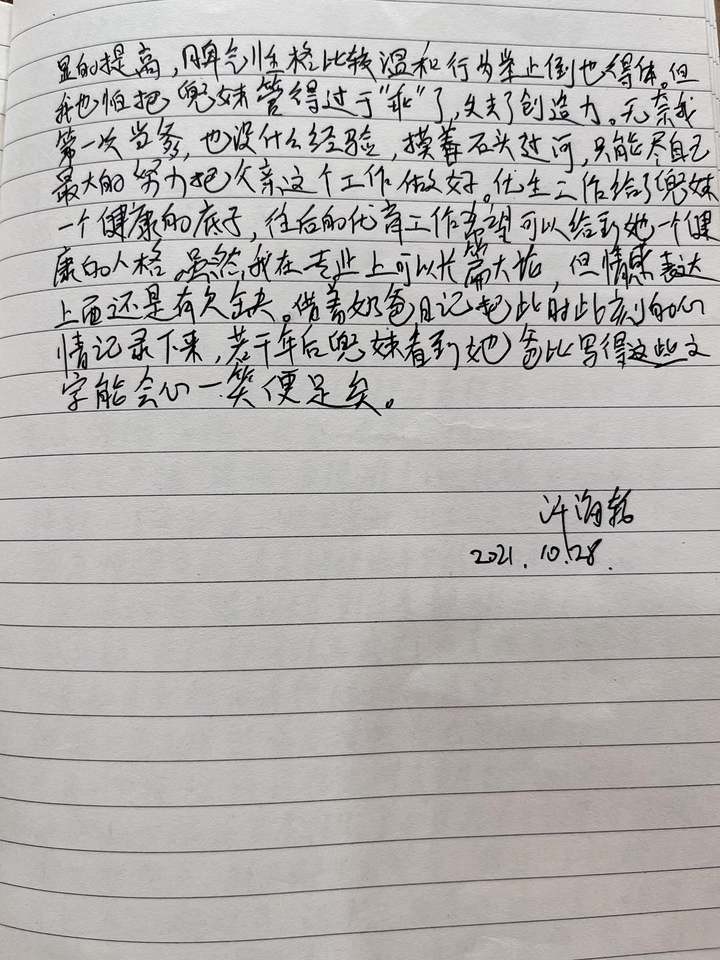 显的提高,脾气性格比较温和行为举止倒也得体。但
我也怕把兜妹管得过于"乖"了,失去了创造力。无奈我
第一次当爹,也没什么经验,摸着石头过河,只能尽自己
最大的努力把父亲这个工作做好。优生工作给了兜妹
一个健康的底子,往后的优育工作希望可以给到她一个健
康的人格。虽然我在专业上可以长篇大论,但情感表达
上面还是有欠缺。借着奶爸日记把此时此刻的心
情记录下来,若干年后兜妹看到她爸比写得这些文
字能会心一笑便足矣。
2021.10.28.